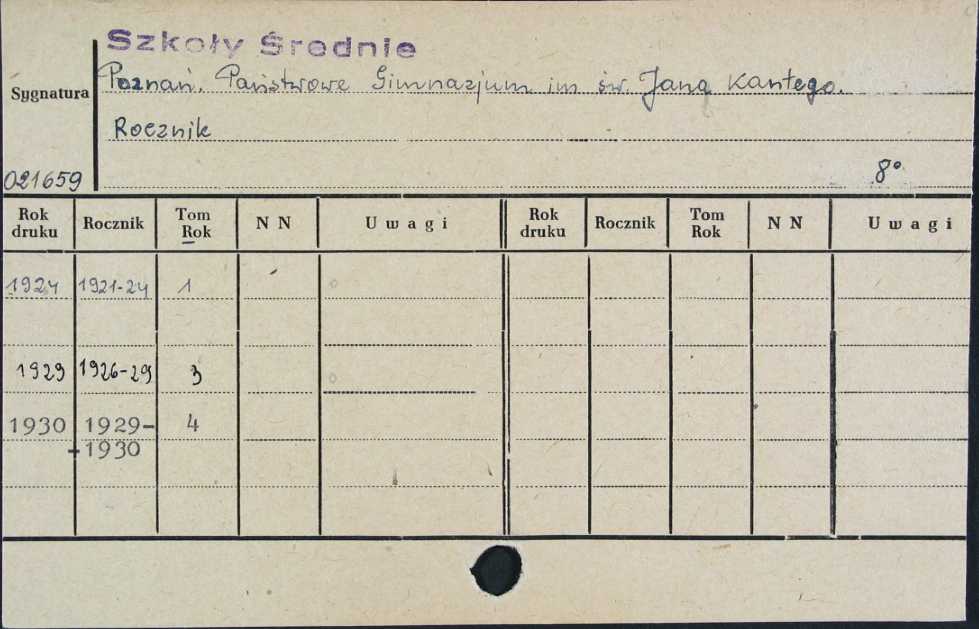 Szkoły Średnie
Poznań. Państwowe Gimnazjum im św. Jana Kantego.
Sygnatura
Rocznik
021659 8°
Rok druku Rocznik Tom Rok N N Uwagi Rok druku Rocznik Tom Rok N N Uwagi
1924 1921-24 1
1929 1926-29 3
1930 1929- 4
-1930